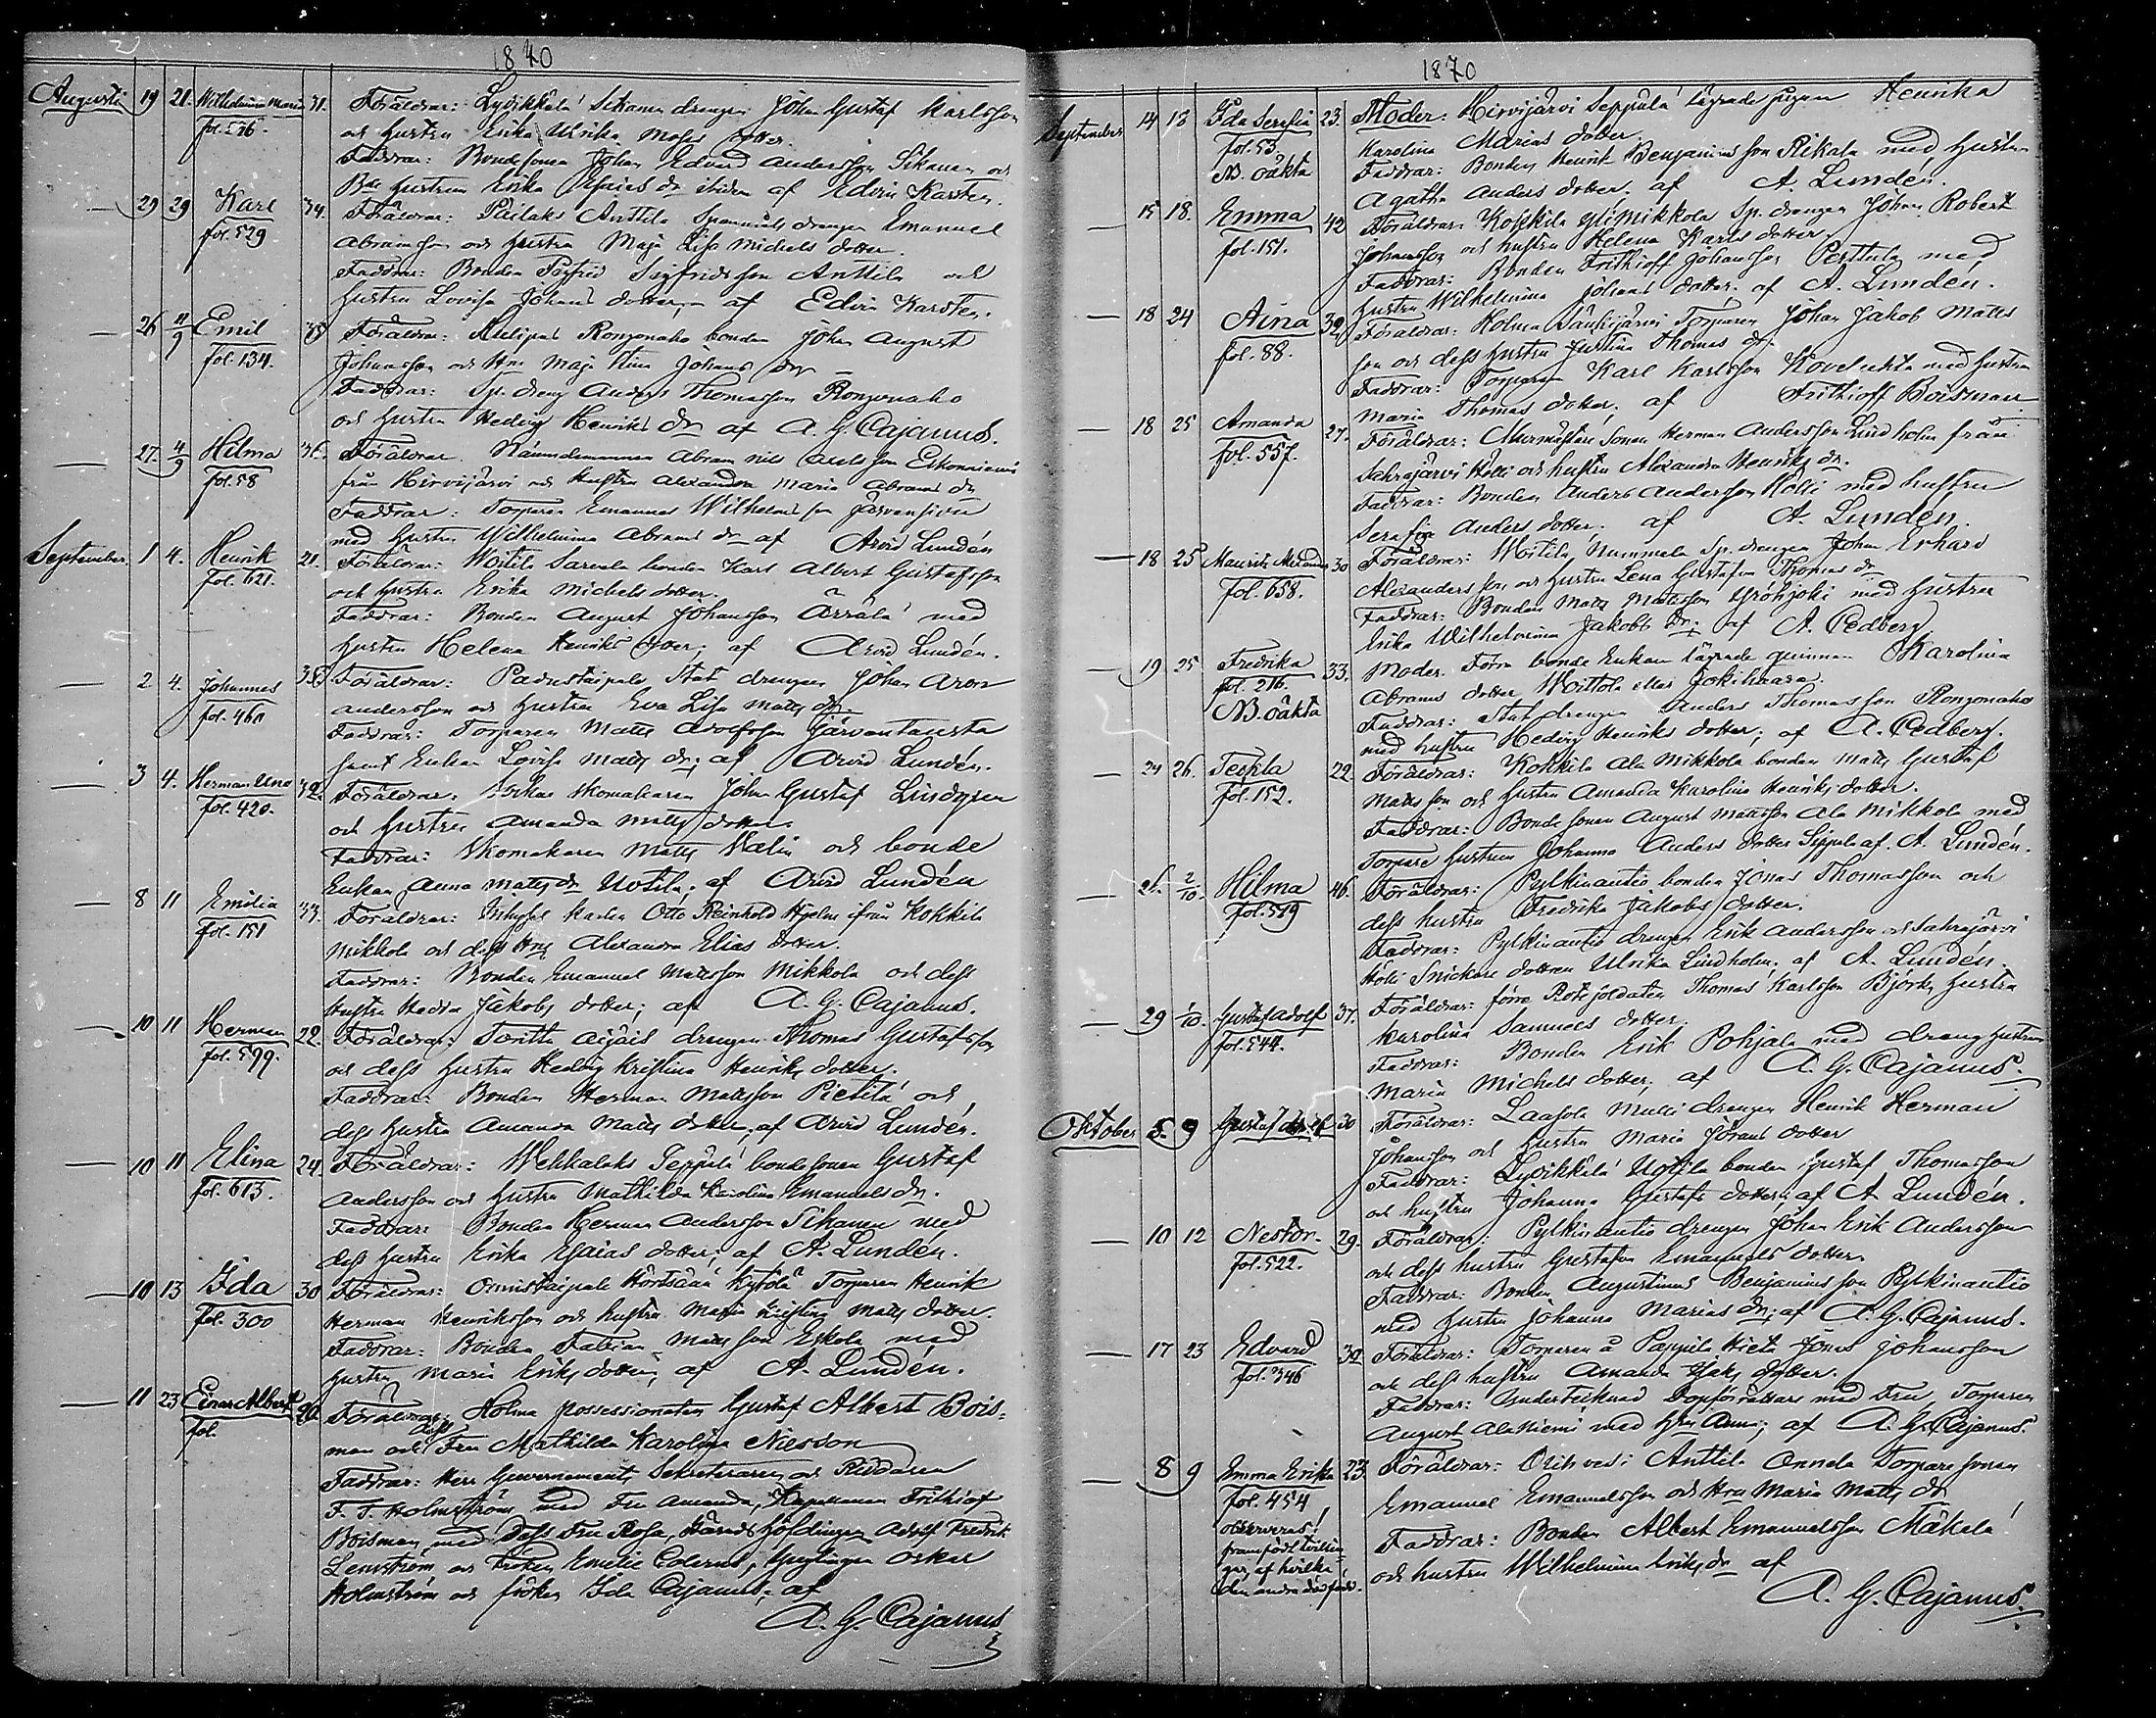 1870
Augusti 19 21. Wilhelmina Maria 31. Föräldrar: Lyöikkälä Sikanen drengen Johan Gustaf Karlsson
fol. 576. och hustru Erika Ulrika Moses dotter.
Faddrar: Bondesonen Johan Edvard Andersson Sikanen och
Bde hustrun Erika Esaias dr ibidem af Edvin Karsten.
— 29 29 Karl 34. Föräldrar: Anttila drengen Emanuel
fol. 529 Abramsson och hustru Maja Lisa Michels dotter.
Faddrar: Bonden Sigfrid Sigfridsson Anttila och
hustru Lovisa Johans dotter, af Edvin Karsten.
— 26 11/9 Emil 38 Föräldrar: Rongonaho bonden Johan August
fol. 134. Johansson och Hru Maja Stina Johans dr
Faddrar: Sp. dreng Anders Thomasson Rongonaho
och hustru Hedvig Henriks dr af A. G. Cajanus.
— 27. 4/9 Hilma 36. Föräldrar. Nämndemannen Abram Nils Axelsson Eskonniemi
fol. 58 från Hirvijärvi och hustru Alexandra Maria Abrams dr
Faddrar: Torparen Emanuel Wilhelmsson Järvensivu
med hustru Wilhelmina Abrams dr af Arvid Lundén
September 1 4. Henrik 21. Föräldrar: Woitila Sarvela bonden Karl Albert Gustafsson
fol. 621. och hustru Erika Michels dotter.
Faddrar: Bonden August Johansson Ärrälä med
hustru Helena Henriks dotter; af Arvid Lundén.
— 2 4. Johannes 38. Föräldrar: Padustaipale Stat drengen Johan Aron
fol. 460 Andersson och hustru Eva Lisa Matts dr.
Faddrar: Torparen Matts Adolfsson Järvantausta
samt Enkan Lovisa Matts dr; af Arvid Lundén.
— 3 4. Herman Uno 32. Föräldrar: Sockne skomakaren Johan Gustaf Lindgren
fol. 420. och hustru Amanda Matts dotter.
Faddrar: Skomakaren Matts Walin och bonde
Enkan Anna Matts dr Uotila; af Arvid Lundén
— 8 11 Emilia 33. Föräldrar: Inhyses karlen Otto Reinhold Hjelm ifrån Kokkila
fol. 151 Mikkola och dess Hru Alexandra Elias dotter.
Faddrar: Bonden Emanuel Mattsson Mikkola och dess
hustru Hedda Jakobs dotter; af A. G. Cajanus.
— 10 11 Herman 22. Föräldrar: Toritto Äijäis drengen Thomas Gustafsson
fol. 599. och dess hustru Hedvig Kristina Henriks dotter.
Faddrar: Bonden Herman Mattsson Pietilä och
dess hustru Amanda Matts dotter; af Arvid Lundén.
— 10 11 Elina 24 Föräldrar: Wehkalaks Seppälä bondesonen Gustaf
fol. 613. Andersson och hustru Mathilda Karolina Emanuels dr.
Faddrar: Bonden Herman Andersson Sikanen med
dess hustru Erika Esaias dotter; af A. Lundén.
— 10 13 Ida 30 Föräldrar: Onnistaipale Torparen Henrik
fol. 300 Herman Henriksson och hustru Maria Kristina Matts dotter.
Faddrar: Bonden Fabian Mattsson Eskola med
hustru Maria Eriks dotter; af A. Lundén.
— 11 23 Einar Albert 20 Föräldrar: Holma possessionaten Gustaf Albert Bois-
fol. man och dess Fru Mathilda Karolina Nielsson
Faddrar: Herr Guvernements Sekreteraren och Riddaren
F. T. Holmström med Fru Amanda, Kapellanen Frithiof
Boisman med dess Fru Rosa, Härads höfdingen Adolf Fredrik
Lenström och fröken Emelie Colerus, Ynglingen Oskar
Holmström och fröken Ida Cajanus; af
A. G. Cajanus
1870
September 14 18 Ida Serafia 23. Moder: Hirvijärvi Seppälä lägrade pigan Henrika
fol. 53. Karolina Marias dotter.
NB. oäkta Faddrar: Bonden Henrik Benjaminsson Rikala med hustru
Agatha Anders dotter. af A. Lundén.
— 15 18. Emma 42 Föräldrar: Kokkila Yli Mikkola Sp. drengen Johan Robert
fol. 151. Johansson och hustru Helena Karls dotter.
Faddrar: Bonden Frithioff Johansson Perttula med
hustru Wilhelmina Johans dotter. af A. Lundén.
— 18 24 Aina 32 Föräldrar: Holma Säukijärvi Torparen Johan Jakob Matts
fol. 88. son och dess hustru Justina Thomas dr.
Faddrar: Torparen Karl Karlsson Kovelahti med hustru
Maria Thomas dotter; af Frithioff Boisman
— 18 25 Amanda 27. Föräldrar: Murmästare Sonen Herman Andersson Lindholm från
fol. 557. Sahrajärvi Holli och hustru Alexandra Henriks dr.
Faddrar: Bonden Anders Andersson Holli med hustru
Serafia Anders dotter. af A. Lundén.
— 18 25 Maurits Alexander 30 Föräldrar: Woitila Nummela Sp. drengen Johan Erhard
fol. 658. Alexandersson och hustru Lena Gustafva Thomas dr
Faddrar: Bonden Matts Mattsson Yrönjoki med hustru
Erika Wilhelmina Jakobs dr; af A. Cedberg
— 19 25 Fredrika 33. Moder. Förra bonde Enkan lägrade qvinnan Karolina
fol. 216. Abrams dotter Woittola eller Jokihaara.
NB. oäkta Faddrar: Stat drengen Anders Thomasson Ronganaho
med hustru Hedvig Henriks dotter; af A. Cedberg.
— 24 26. Teckla 22. Föräldrar: Kokkila Ala Mikkola bonden Matts Gustaf
fol. 152. Mattsson och hustru Amanda Karolina Henriks dotter.
Faddrar: Bonde sonen August Mattsson Ala Mikkola med
Torpare hustrun Johanna Anders dotter Seppälä af. A. Lundén.
— 26. 2/10. Hilma 46. Föräldrar: Pylkinautio bonden Jonas Thomasson och
fol. 519 dess hustru Fredrika Jakobs dotter.
Faddrar: Pylkinautio drengen Erik Andersson och Sahrajärvi
Holli Snickare dottren Ulrika Lindholm; af A. Lundén.
— 29 1/10. Gustaf Adolf 37. Föräldrar: förre Rotesoldaten Thomas Karlsson Björk, hustru
fol. 544. Karolina Samuels dotter.
Faddrar: Bonden Erik Pohjala med dreng hustrun
Maria Michels dotter; af A. G. Cajanus.
Oktober 5 9 Gustaf 30 Föräldrar: Laasola Mulli drengen Henrik Herman
Johansson och hustru Maria Jörans dotter
Faddrar: Lyöikkälä Uotila bonden Gustaf Thomasson
och hustru Johanna Gustafs dotter; af A Lundén.
— 10 12 Nestor. 29. Föräldrar: Pylkinautio drengen Johan Erik Andersson
fol. 522. och dess hustru Gustafva Emanuels dotter.
Faddrar: Bonden Augustinus Benjaminsson Pylkinautio
med hustru Johanna Marias dr; af A. G. Cajanus.
— 17 23 Edvard 32 Föräldrar: Torparen å Pappila Hieta Jonas Johansson
fol. 346 och dess hustru Amanda Isaks dotter.
Faddrar: Undertecknad Dopförrättare med Fru, Torparen
August Alaniemi med Hru Anna; af A. G. Cajanus.
— 8 9 Emma Erika 23. Föräldrar: Orihvesi Anttila Onnela Torpare sonen
fol. 454 Emanuel Emanuelsson och Hru Maria Matts dr
observeras! Faddrar: Bonden Albert Emanuelsson Mäkelä
framfödt tvillin-
gar, af hvilka och hustru Wilhelmina Eriks dr af
den andra dödfödd.
A. G. Cajanus.